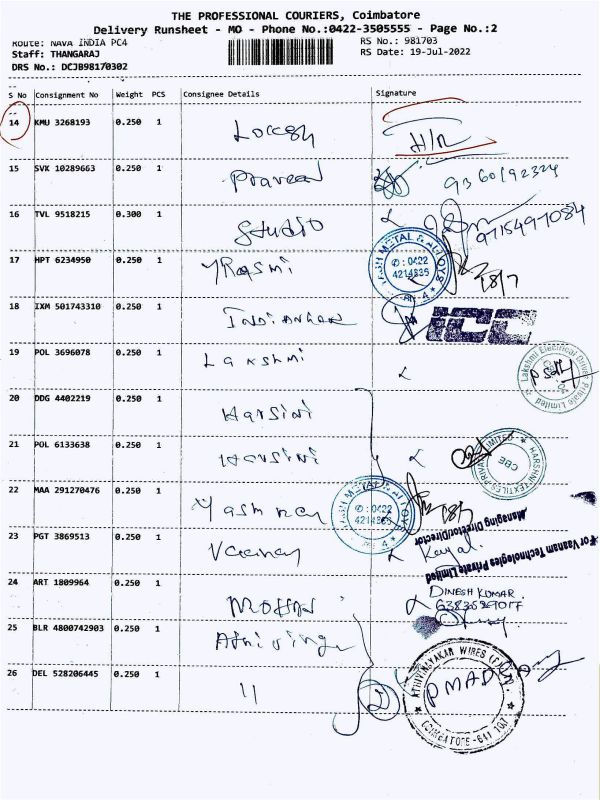 THE PROFESSIONAL COURIERS, Coimbatore
Delivery Runsheet - MO - Phone No.:0422-3505555 - Page No.:2
Route: NAVA INDIA PC4
RS No.: 981703
Staff: THANGARAJ
RS Date: 19-Jul-2022
DRS No.: DCJB98170302
S No Consignment No Weight PCS Consignee Details Signature
14 KMU 3268193 0.250 1 H/R
15 SVK 10289663 0.250 1 Praveen
16 TVL 9518215 0.300 1 Studio 9715497084
17 HPT 6234950 0.250 1 YRasmi 18/7
YASH METAL & ALLOYS
✆ : 0422
4214836
18 IXM 501743310 0.250 1 ICC
19 POL 3696078 0.250 1 Lakshmi
Lakshmi Electrical Drives Private Limited
20 DDG 4402219 0.250 1 Harsini
21 POL 6133638 0.250 1 Harsini
HARSHNI TEXTILES PRIVATE LIMITED
CBE
22 MAA 291270476 0.250 1
YASH METAL & ALLOYS
✆ : 0422
4214836
23 PGT 3869513 0.250 1 Kayal
For Vaanam Technologies Private Limited
Managing Director/Director
24 ART 1809964 0.250 1 MOHAN DINESH KUMAR
6383629017
25 BLR 4800742903 0.250 1
26 DEL 528206445 0.250 1 11 2
ATHIVINAYAKAR WIRES (P) LTD.
COIMBATORE - 641 107